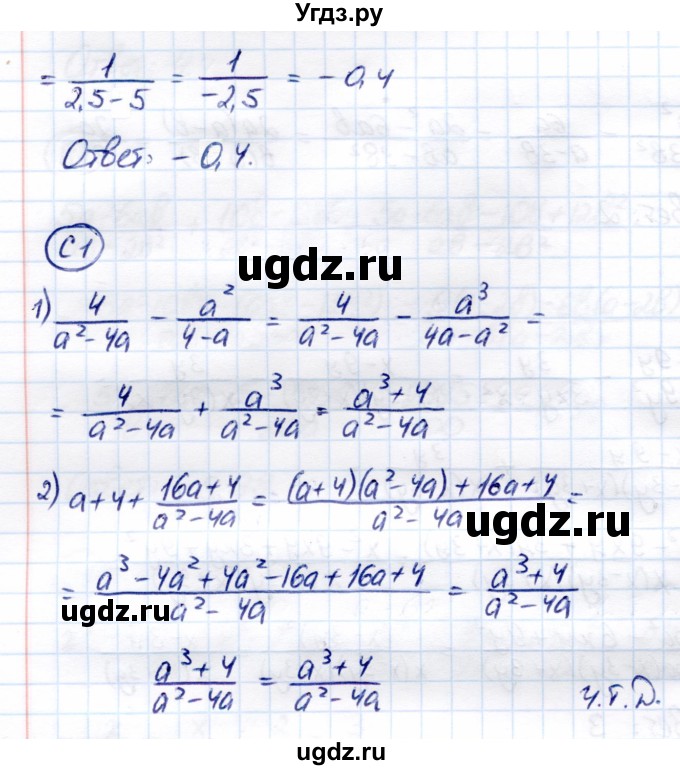 Угдз.ру
= 1/(2,5-5) = 1/(-2,5) = -0,4
Ответ: -0,4.
С1
ugdz.ru
1) 4/(a²-4a) - a²/(4-a) = 4/(a²-4a) - a³/(4a-a²) =
= 4/(a²-4a) + a³/(a²-4a) = (a³+4)/(a²-4a)
2) a+4+(16a+4)/(a²-4a) = ((a+4)(a²-4a)+16a+4)/(a²-4a) =
ugdz.ru
= (a³-4a²+4a²-16a+16a+4)/(a²-4a) = (a³+4)/(a²-4a)
ugdz.ru
(a³+4)/(a²-4a) = (a³+4)/(a²-4a)
ч.т.д.
ugdz.ru